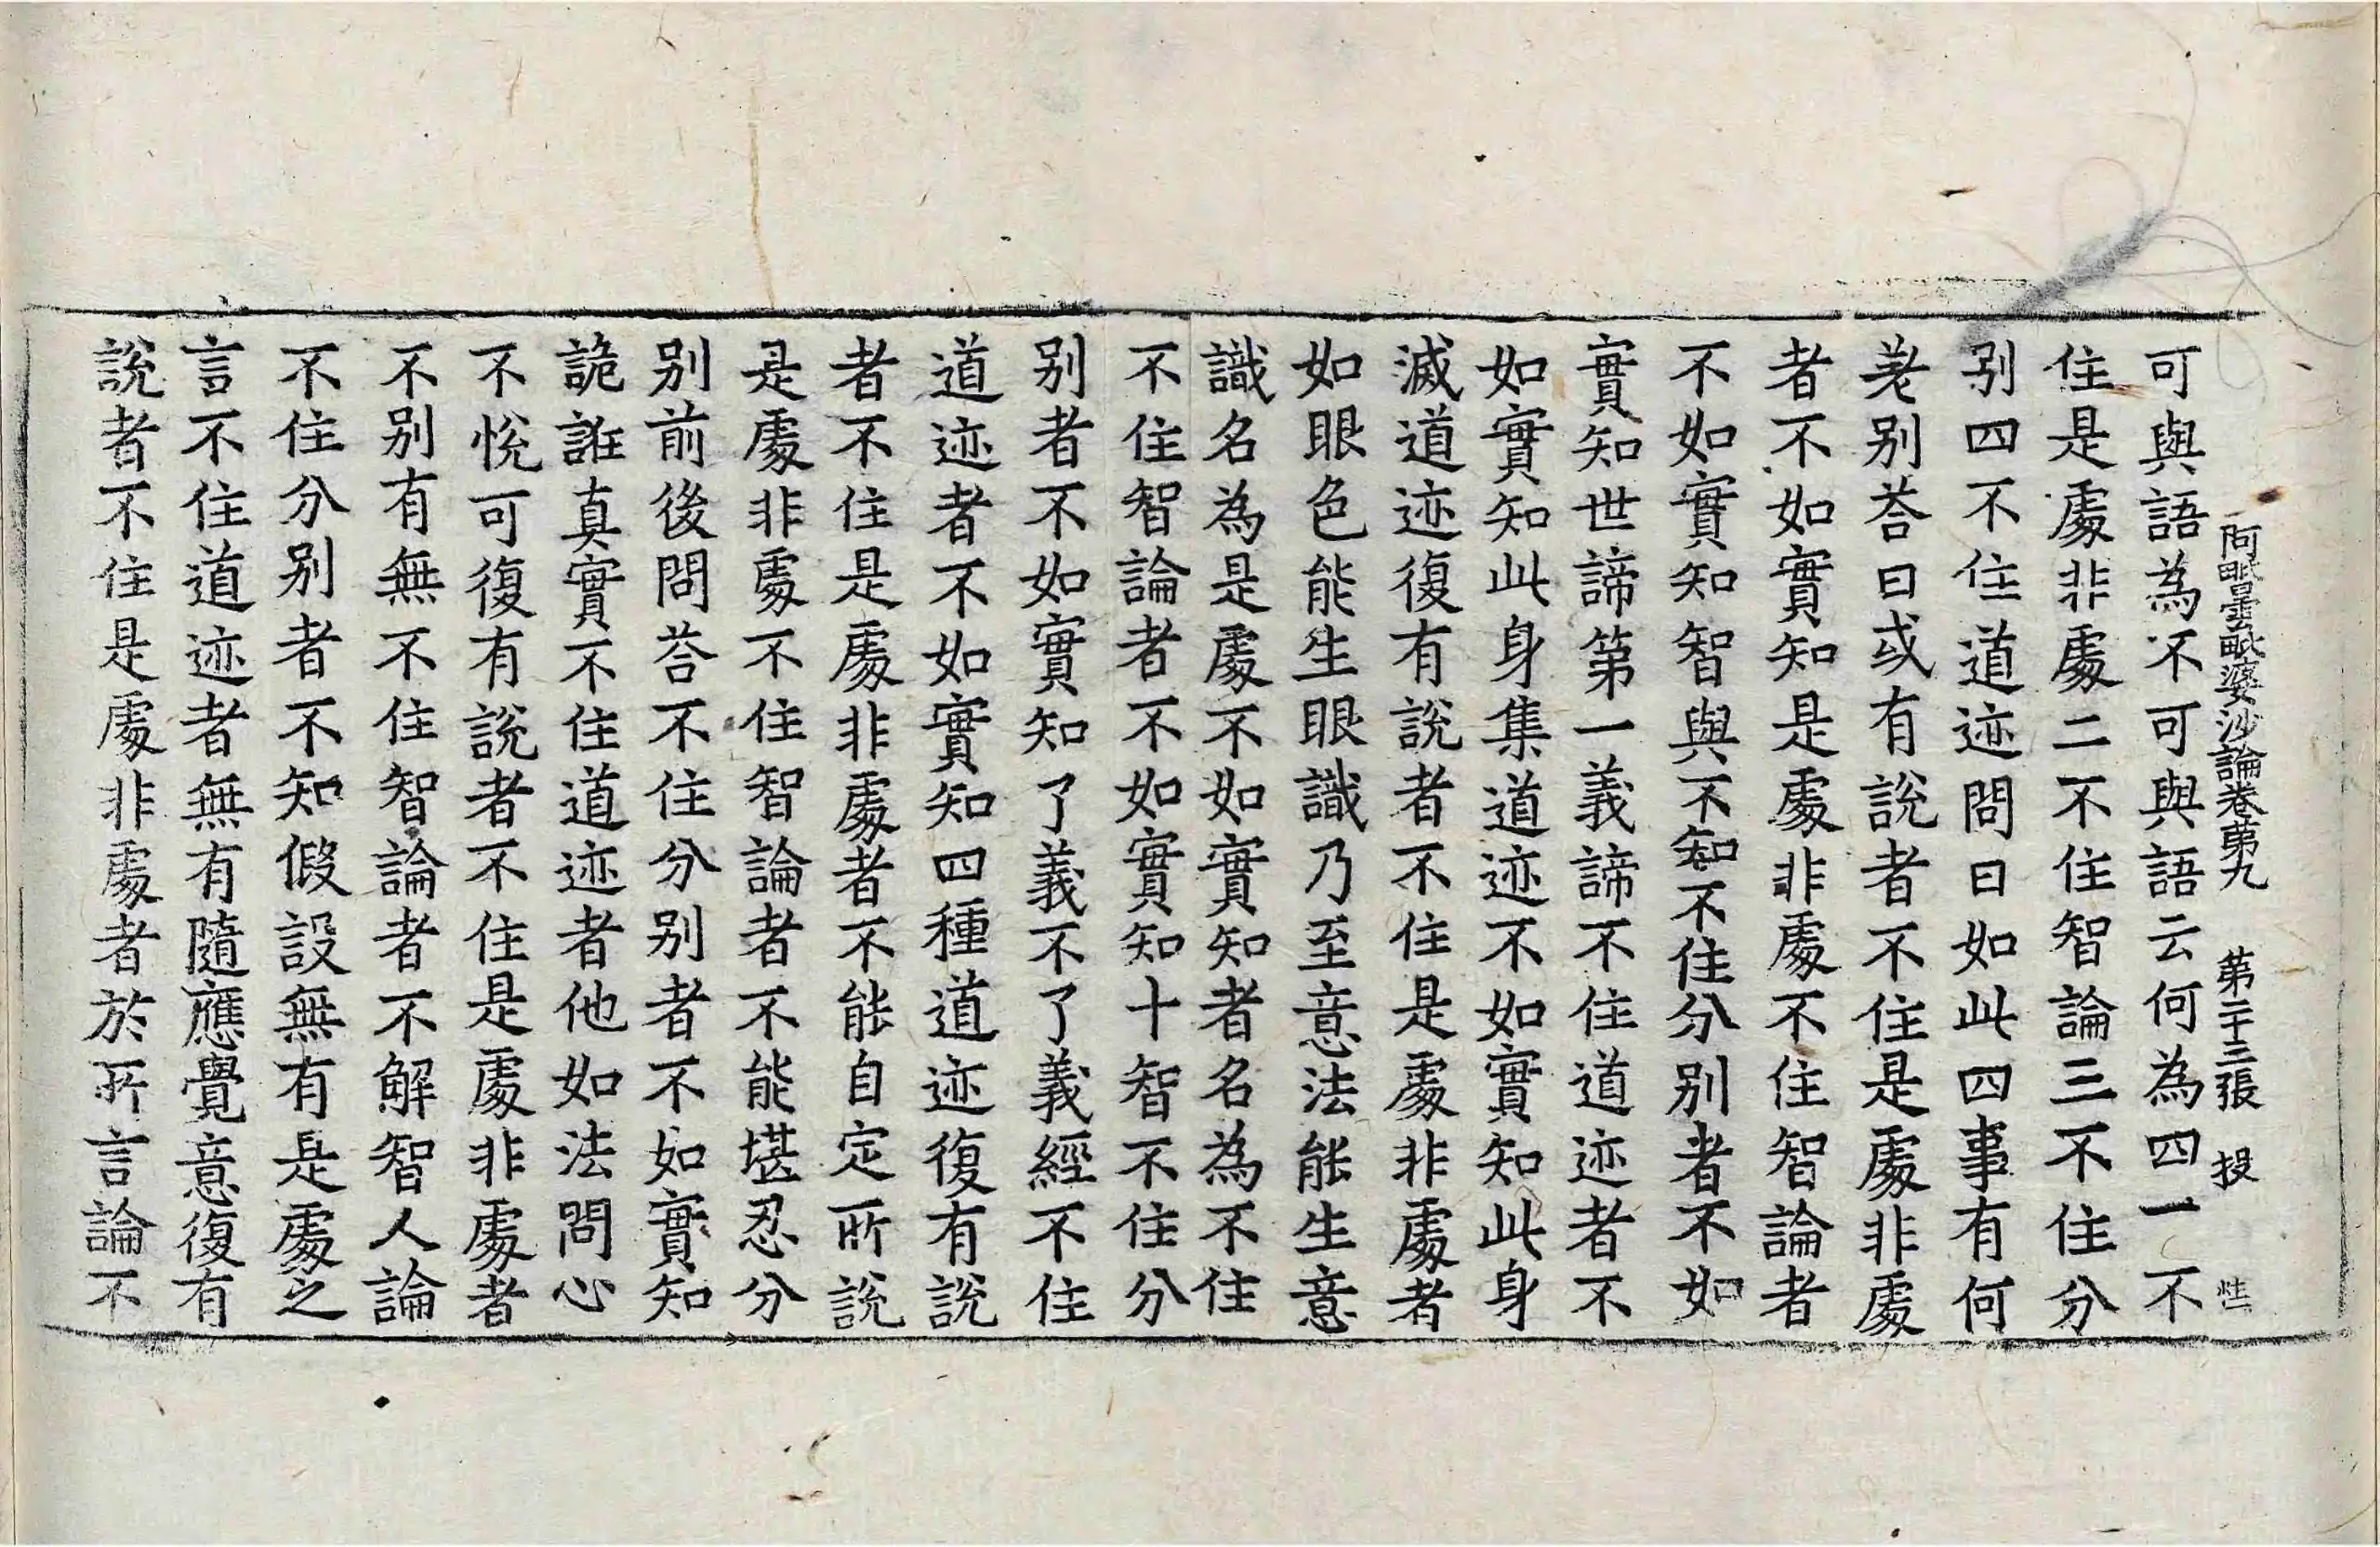 阿毗曇毗婆沙論卷第九 第二十三張 投
可與語為不可與語云何為四一不
住是處非處二不住智論三不住分
別四不住道迹問曰如此四事有何
差別荅曰或有說者不住是處非處
者不如實知是處非處不住智論者
不如實知智與不知不住分別者不如
實知世諦第一義諦不住道迹者不
如實知此身集道迹不如實知此身
滅道迹復有說者不住是處非處者
如眼色能生眼識乃至意法能生意
識名為是處不如實知者名為不住
不住智論者不如實知十智不住分
別者不如實知了義不了義經不住
道迹者不如實知四種道迹復有說
者不住是處非處者不能自定所說
是處非處不住智論者不能堪忍分
別前後問荅不住分別者不如實知
詭誑真實不住道迹者他如法問心
不悅可復有說者不住是處非處者
不別有無不住智論者不解智人論
不住分別者不知假設無有是處之
言不住道迹者無有隨應覺意復有
說者不住是處非處者於所言論不